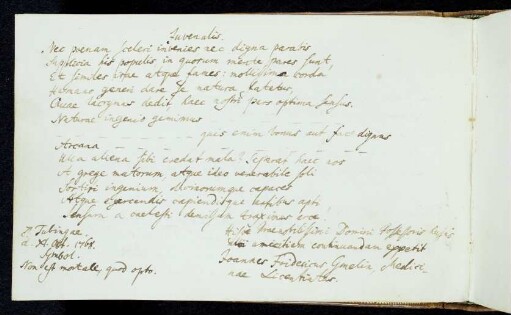 Juvenalis.
Nec poenam sceleri invenies nec digna parabis
Supplicia his populis in quorum mente pares sunt,
Et similes irae atque fames: mollissima corda
Humano generi dare se natura fatetur,
Quae lacrymas dedit haec nostri pars optima sensus.
Naturae
quis enim bonus aut face dignus
Arcana
Ulla aliena sibi credat mala? Separat haec nos
A grege mutorum, atque ideo venerabile soli
Sortiti ingenium, divinorumque capaces
Atque exercendis capiendisque artibus apti
Sensum a coelesti demissum traximus arce
Tubingae.
d. Oct. 1768.
Symbol.
Non est mortale, quod opto.
Domini Possessoris
amicitiam continuandam expetit
Joannes Fridericus Gmelin, Medici-
nae Licentiatus.